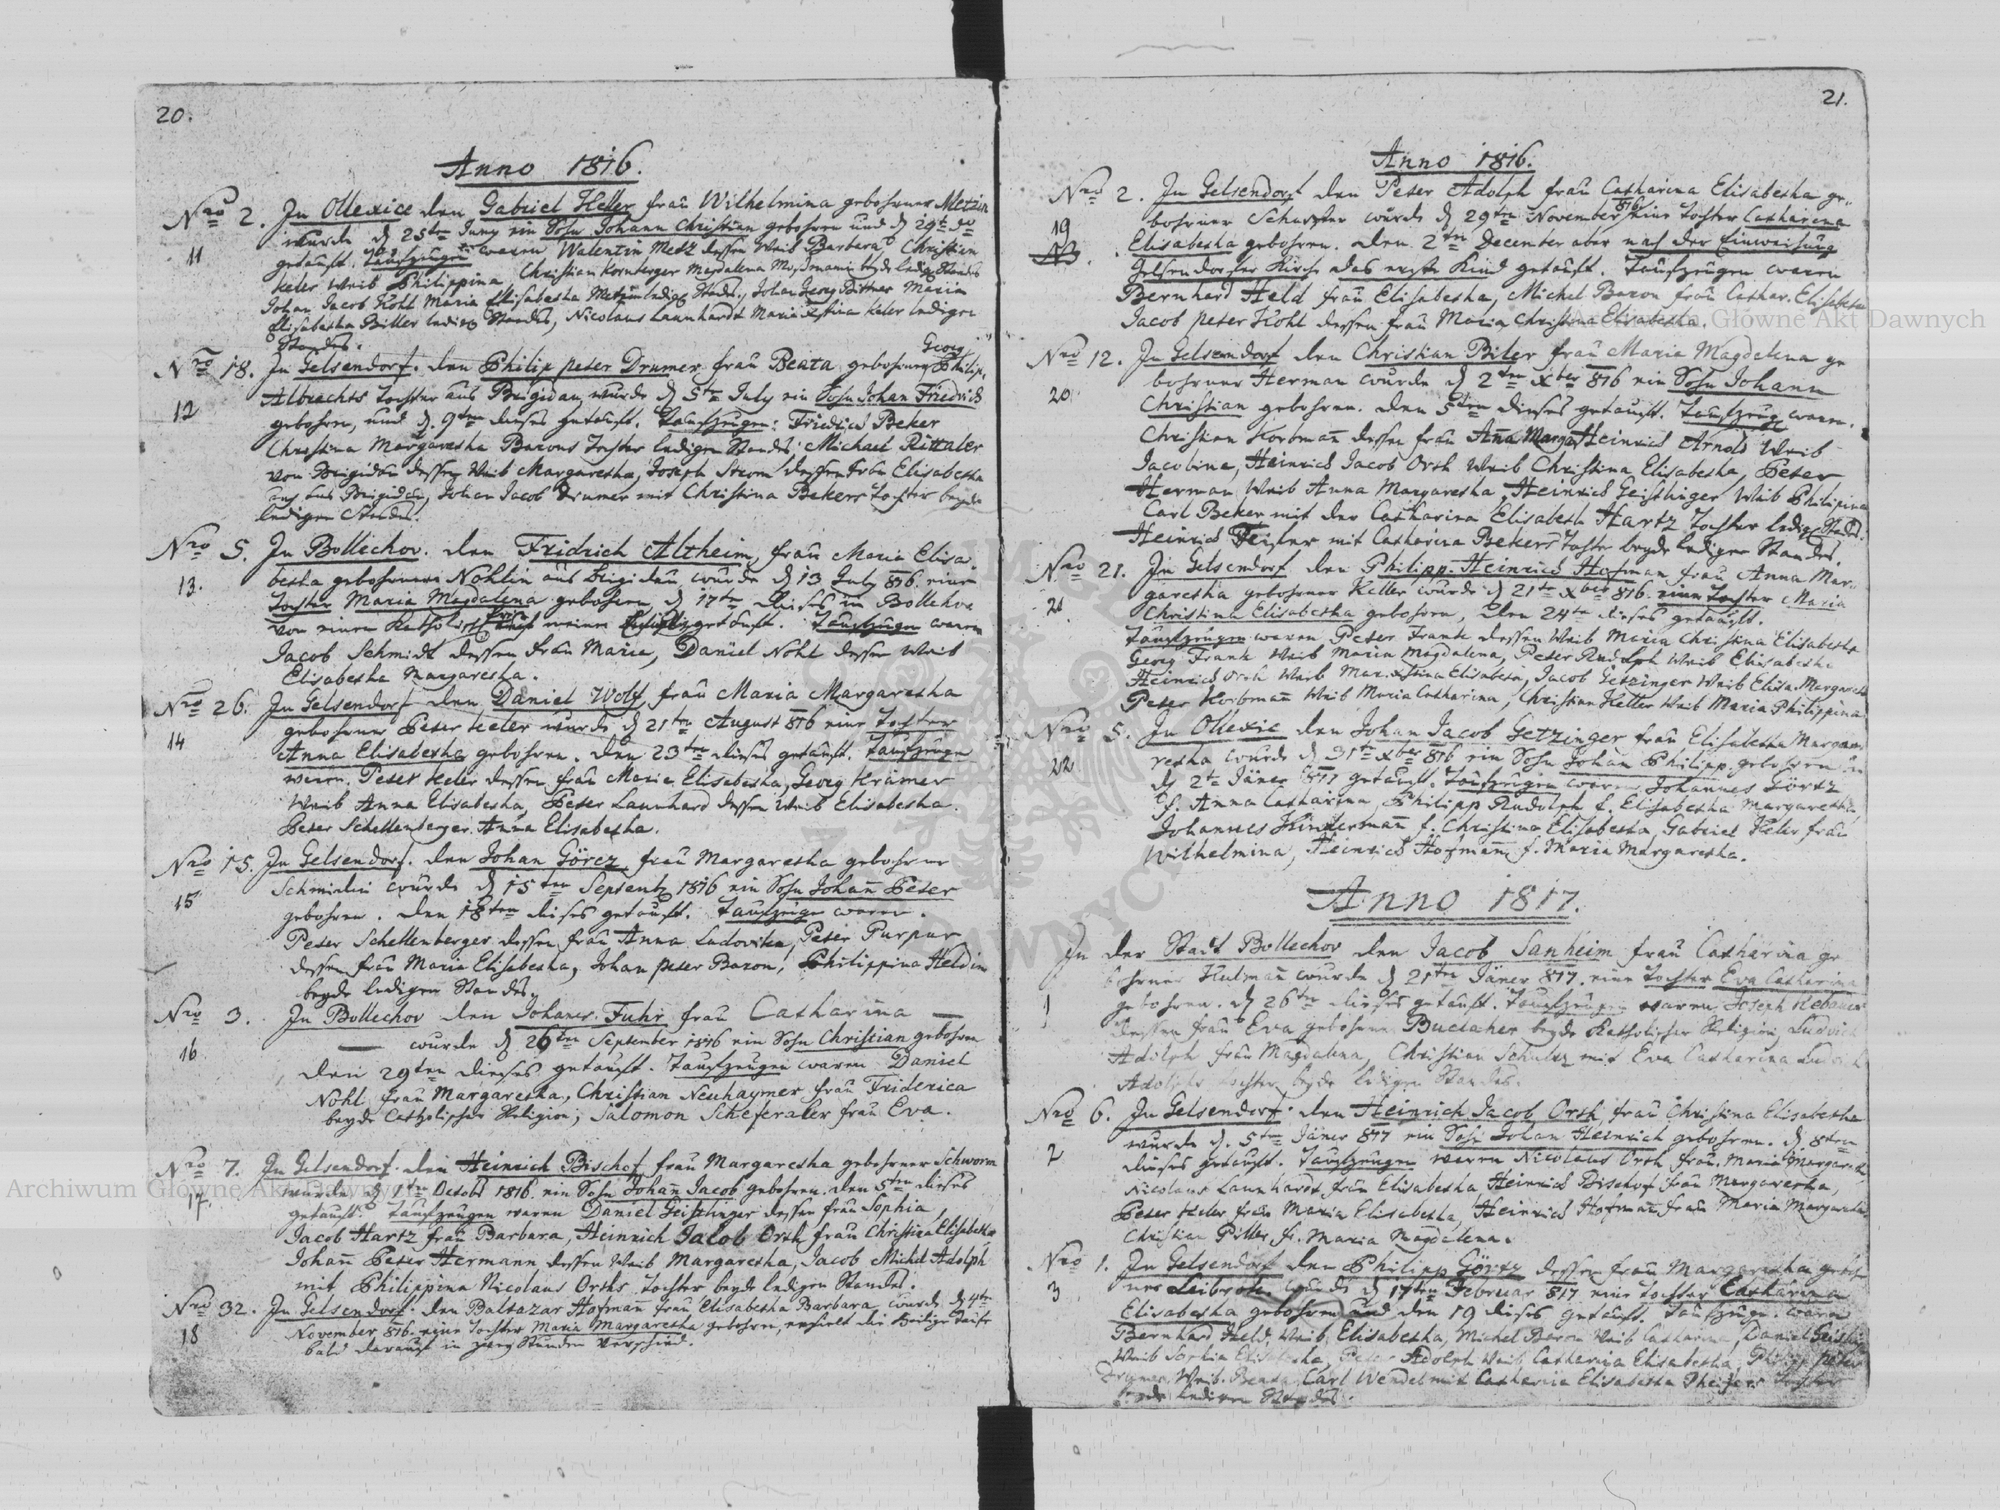 20.
Anno 1816.
Nro 2. In Ollexice den Gabriel Keller frau Wilhelmina gebohrner Metzin
11 wurde d 25ten Juny ein Sohn Johann Christian gebohren und d 29t do
getauft. Taufzeugen waren Walentin Metz dessen Weib Barbara Christian
Keler Weib Philippina Christian Kornberger Magdalena beyde ledig Standes
Johan Jacob Kohl Maria Elisabetha ledig Standes, Johan Georg Bittner Maria
Elisabetha Bitter ledig Standes, Nicolaus Launhardt Maria Keler lediger
Standes.
Nro 18. In Gelsendorf. den Philip Peter Drumer frau Beata gebohrne Georg Philip
12 Albrechts Tochter aus Brigidau wurde d 5ten July ein Sohn Johan Friedrich
gebohren, und d. 9ten dieses getauft. Taufzeugen: Fridrich Beker
Christina Margaretha Barons Tochter ledigen Standes, Michael Rittaler
von Brigidau dessen Weib Margaretha, Joseph Strom dessen frau Elisabetha
aus Brigidau, Johan Jacob Drumer mit Christina Bekers Tochter beyde
ledigen Standes.
Nro 5. In Bollechov. den Fridrich Alzheim, frau Maria Elisa-
13. betha gebohrner Nohlin aus Brigidau, wurde d 13 July 816. eine
Tochter Maria Magdalena gebohren d 17ten dieses in Bollechov
von einen Katholisch getauft. Taufzeugen waren
Jacob Schmidt dessen frau Maria, Daniel Nohl dessen Weib
Elisabetha Margaretha.
Nro 26. In Gelsendorf den Daniel Wolf frau Maria Margaretha
14 gebohrner Peter Keler wurde d 21ten August 816 eine Tochter
Anna Elisabetha gebohren. den 23ten dieses getauft. Taufzeuge
waren. Peter Keler dessen frau Maria Elisabetha, Georg Krämer
Weib Anna Elisabetha, Peter Launhard dessen Weib Elisabetha.
Peter Schellenberger Anna Elisabetha.
Nro 15. In Gelsendorf. den Johan Görcz frau Margaretha gebohrner
15 Schmielin wurde d 15ten Septemb 1816 ein Sohn Johann Peter
gebohren. den 18ten dises getauft. Taufzeuge waren.
Peter Schellenberger dessen frau Anna Ludovika, Peter Purpur
dessen frau Maria Elisabetha, Johan Peter Baron, Philippina Heldin
beyde ledigen Standes.
Nro 3. In Bollechov den Johanes Fuhr frau Catharina —
16 — wurde d 26ten September 1816 ein Sohn Christian gebohren
den 29ten dieses getauft. Taufzeugen waren Daniel
Nohl frau Margaretha, Christian Neuhaymer frau Friderica
beyde Catholischer Religion, Salomon Scheferaler frau Eva.
Nro 7. In Gelsendorf. den Heinrich Bischof frau Margaretha gebohrner Schworm
17. wurde d 1ten Octobr 1816. ein Sohn Johann Jacob gebohren. den 5ten dieses
getauft. Taufzeugen waren Daniel Geisslinger dessen frau Sophia
Jacob Hartz frau Barbara, Heinrich Jacob Orth frau Christina Elisabetha
Johann Peter Hermann dessen Weib Margaretha, Jacob Michel Adolph
mit Philippina Nicolaus Orths Tochter beyde ledigen Standes.
Nro 32. In Gelsendorf. den Baltazar Hofman frau Elisabetha Barbara, wurde d 4ten
18 November 816. eine Tochter Maria Margaretha gebohren, erhielt die Heilige Taufe
bald darauf in zwey Stunden verschied.
21.
Anno 1816.
Nro 2. In Gelsendorf den Peter Adolph frau Catharina Elisabetha ge-
19 bohrner Scharrer wurde d 29ten November 816 eine Tochter Catharina
Elisabetha gebohren. den 2ten December aber nach der Einweihung
Gelsendorfer Kirche das erste Kind getauft. Taufzeugen waren
Bernhard Held frau Elisabetha, Michel Baron frau Cathar. Elisabetha
Jacob Peter Kohl dessen frau Maria Christina Elisabetha.
Nro 12. In Gelsendorf den Christian Biler frau Maria Magdalena ge
20 bohrner Herman wurde d 2ten Xber 816 ein Sohn Johann
Christian gebohren. den 5ten dieses getauft. Taufzeug waren.
Christian Korbman dessen frau Anna Marga Heinrich Arnold Weib
Jacobina, Heinrich Jacob Orth Weib Christina Elisabetha, Peter
Herman Weib Anna Margaretha, Heinrich Geisslinger Weib Philippina
Carl Beker mit der Catharina Elisabeth Hartz Tochter ledig Stand.
Heinrich mit Catharina Bekers Tochter beyde lediger Standes.
Nro 21. In Gelsendorf. den Philipp Heinrich Hofman frau Anna Mar-
21 garetha gebohrner Keller wurde d 21ten Xber 816. eine Tochter Maria
Christina Elisabetha gebohren, den 24ten dieses getauft.
Taufzeugen waren Peter Frank dessen Weib Maria Christina Elisabetha
Georg Frank Weib Maria Magdalena, Peter Rudolph Weib Elisabetha
Heinrich Orth Weib Elisabeta, Jacob Getzinger Weib Elisa. Margareth
Peter Korbmann Weib Maria Catharina, Christian Keller Weib Maria Philippina
Nro 5. In Ollexic den Johan Jacob Getzinger frau Elisabetha Marga-
22 retha wurde d 31ten Xber 816 ein Sohn Johan Philipp gebohren
d 2ten Jäner 817 getauft. Taufzeugen waren Johannes Görtz
f. Anna Catharina, Philipp Rudolph f. Elisabetha Margaretha,
Johannes Kindermann f. Christina Elisabetha, Gabriel Keler frau
Wilhelmina, Heinrich Hofmann f. Maria Margaretha.
Anno 1817.
In der Stadt Bollechov den Jacob Sanheim frau Catharina ge
bohrner wurde d 21ten Jäner 817. eine Tochter Eva Catharina
1 gebohren. d 26ten dieses getauft. Taufzeugen waren Joseph
dessen frau Eva gebohrne beyde Katholischer Religion, Ludwich
Adolph frau Magdalena, Christian Schultz mit Eva Catharina Ludwich
Adolphs Tochter beyde ledigen Standes.
Nro 6. In Gelsendorf. den Heinrich Jacob Orth, frau Christina Elisabetha
2 wurde d. 5ten Jäner 817 ein Sohn Johan Heinrich gebohren. d 8ten
dieses getauft. Taufzeugen waren Nicolaus Orth frau. Maria Margareth
Nicolaus Launhardt frau Elisabetha Heinrich Bischof frau Margaretha,
Peter Keler frau Maria Elisabetha, Heinrich Hofmann frau Maria Margaretha
Christian Biller fr. Maria Magdalena.
Nro 1. In Gelsendorf den Philipp Görtz dessen frau Margaretha geboh-
3 rner Leibroken wurde d 17ten Februar 817 eine Tochter Catharina
Elisabetha gebohren und den 19 dieses getauft. Taufzeuge waren
Bernhard Held. Weib Elisabetha, Michel Baron Weib Catharina, Daniel
Weib Sophia Elisabetha, Peter Adolph Weib Catharina Elisabetha, Philipp Peter
Drumer Weib. Beata, Carl Wendel mit Catharina Elisabetha Tochter
beyde ledigen Standes.
Archiwum Główne Akt Dawnych
Archiwum Główne Akt Dawnych